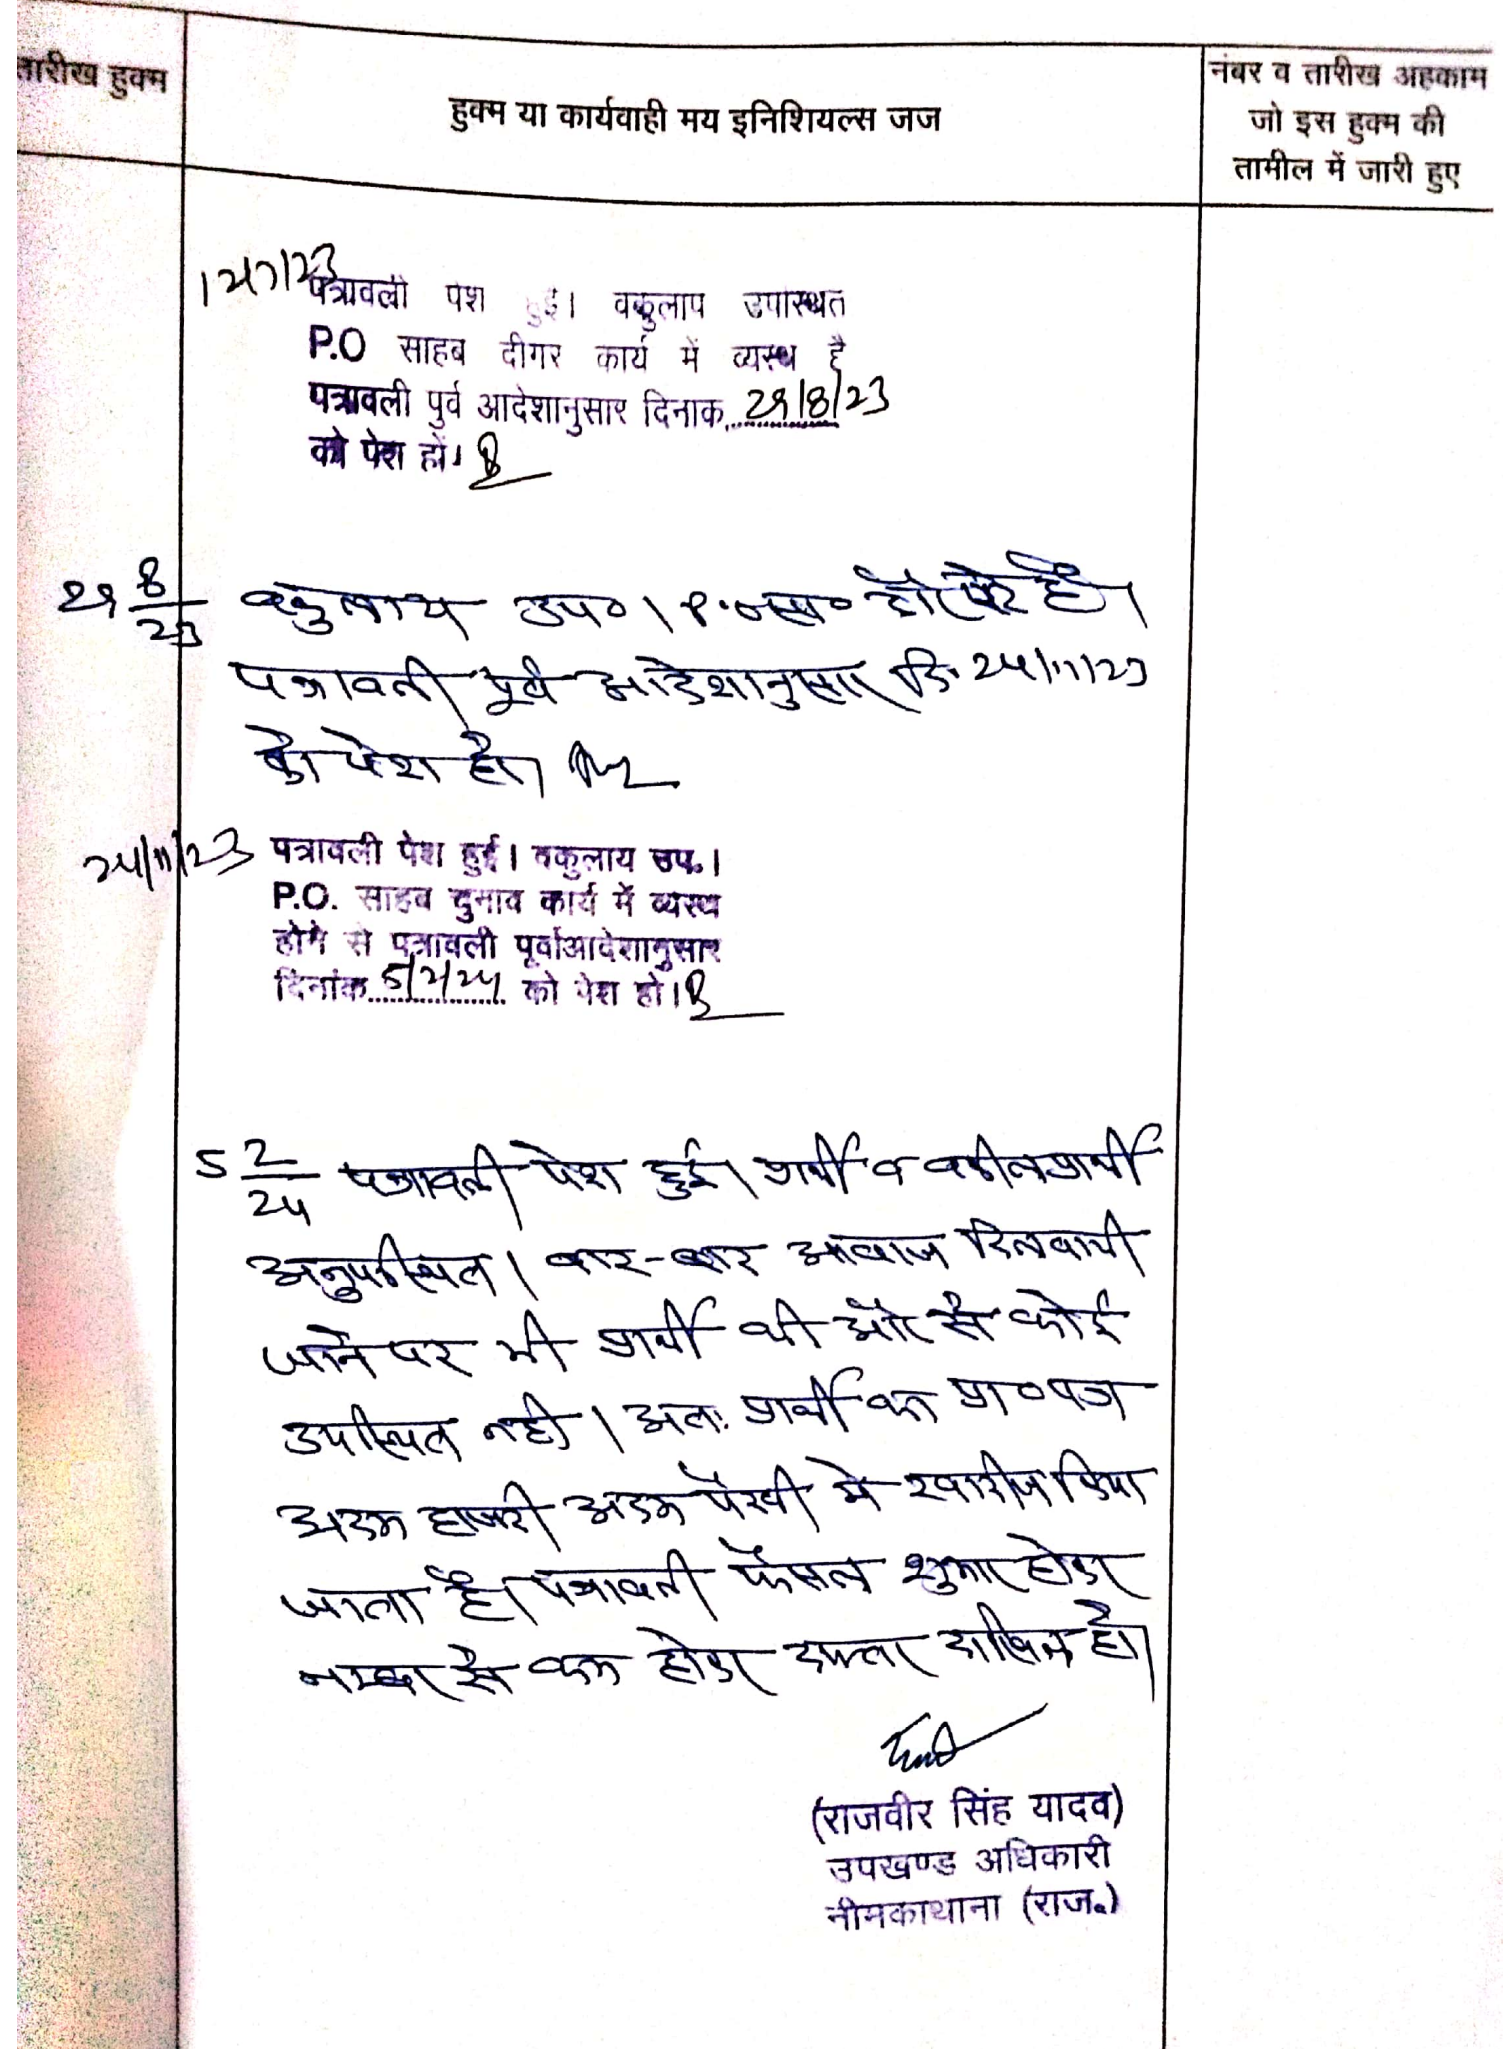 तारीख हुक्म
हुक्म या कार्यवाही मय इनिशियल्स जज
नंबर व तारीख अहकाम
जो इस हुक्म की
तामील में जारी हुए
पत्रावली पेश हुई। वकुलाप उपस्थित
P.O साहब दीगर कार्य में व्यस्थ है
पत्रावली पुर्व आदेशानुसार दिनाक 29/8/23
को पेश हों।
29 8/23 वकुलाय उप० । P.O सा० दौरे पर है।
पत्रावली पूर्व आदेशानुसार दि. 24/11/23
को पेश हो।
24/11/23 पत्रावली पेश हुई। वकुलाय उप.।
P.O. साहब चुनाव कार्य में व्यस्थ
होने से पत्रावली पूर्वाआदेशानुसार
दिनांक 5/2/24 को पेश हो।
5 2/24 पत्रावली पेश हुई। प्रार्थी व वकील प्रार्थी
अनुपस्थित। बार-बार आवाज दिलवायी
जाने पर भी प्रार्थी की ओर से कोई
उपस्थित नही। अतः प्रार्थी का प्रा० पत्र
अदम हाजरी अदम पैरवी मे खारीज किया
जाता है। पत्रावली फैसल शुमार होकर
नम्बर से कम होकर दफ्तर दाखिल हो।
(राजवीर सिंह यादव)
उपखण्ड अधिकारी
नीमकाथाना (राज.)